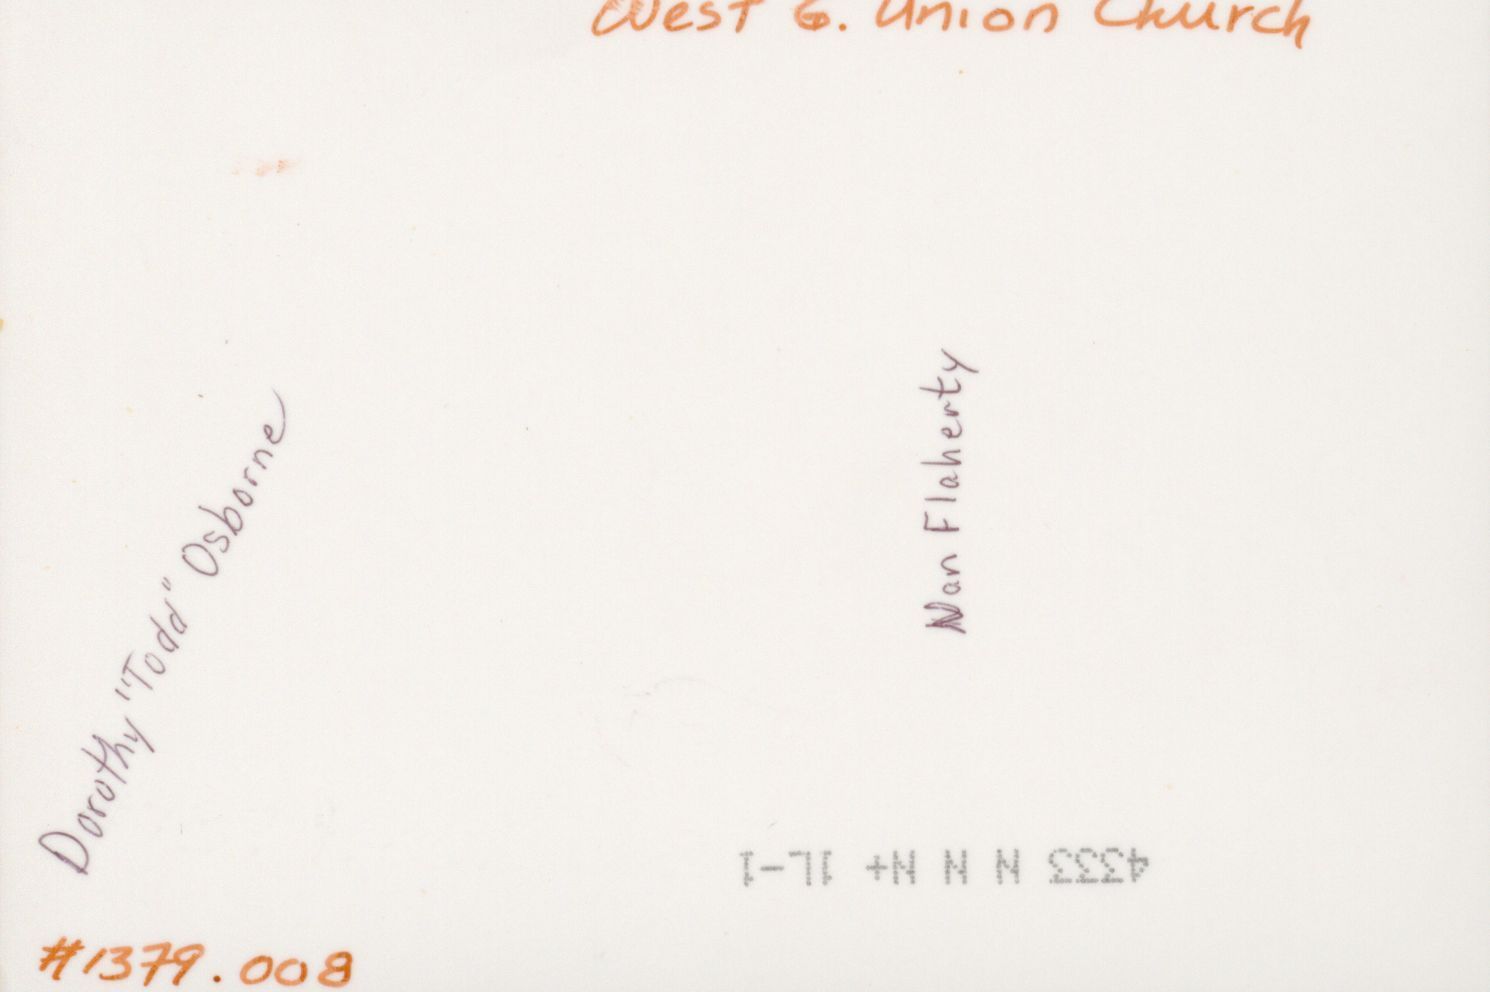 West G. Union Church
Dorothy "Todd" Osborne
Nan Flaherty
4333 N N N+ 1L-1
#1379.008